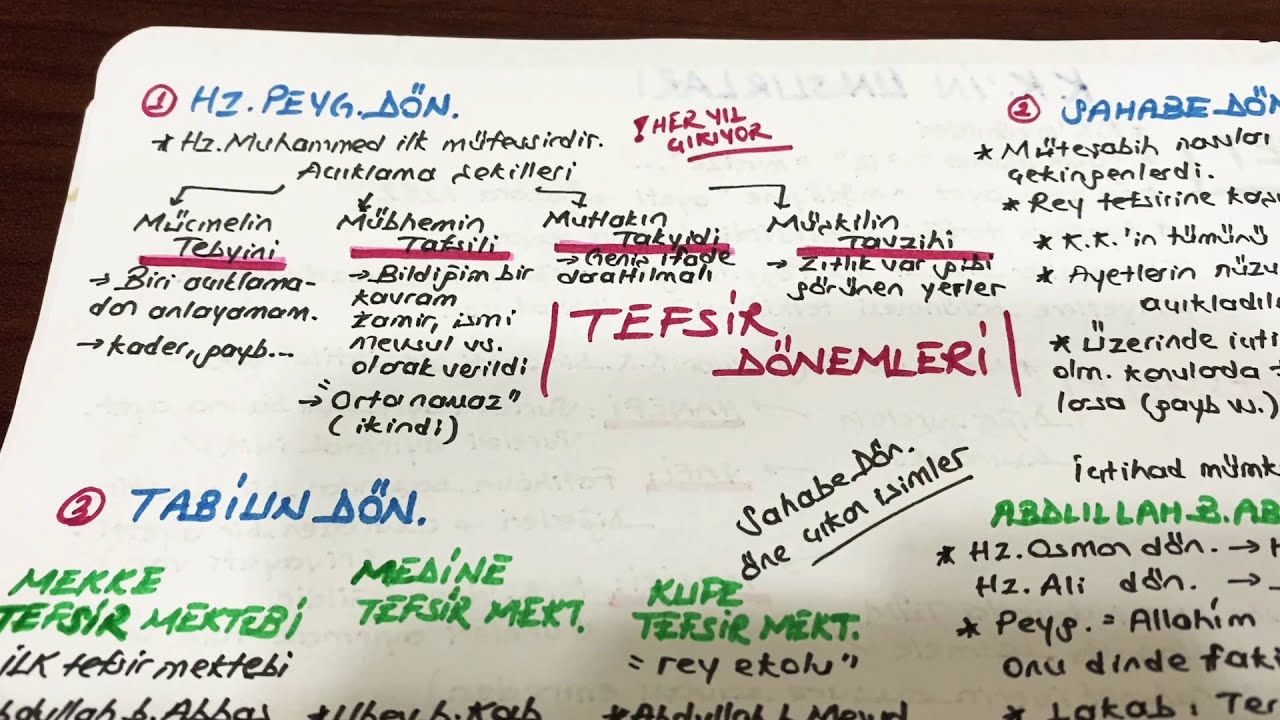 ① HZ. PEYG. DÖN.
* Hz. Muhammed ilk müfessirdir.
Açıklama şekilleri
! HER YIL
ÇIKIYOR
Mücmelin
Tebyini
→ Biri açıklama-
dan anlayamam.
→ kader, gayb...
Mübhemin
Tafsili
→ Bildiğim bir
kavram
zamir, ismi
mevsul vs.
olarak verildi
→ "Orta namaz"
(ikindi)
Mutlakın
Takyidi
→ Geniş ifade
daraltılmalı
Müşkilin
Tavzihi
→ Zıtlık var gibi
görünen yerler
TEFSİR
DÖNEMLERİ
② SAHABE DÖN
* Müteşabih nasları
çekingenlerdi.
* Rey tefsirine
* K.K.'in tümünü
* Ayetlerin nüzu
açıkladıla
* Üzerinde içti
olm. konularda
(gayb vs.)
içtihad mümk
Sahabe Dön.
öne çıkan isimler
ABDULLAH B. AB
* Hz. Osman dön. → H
Hz. Ali dön. →
* Peyg. = Allahim
onu dinde faki
* Lakab: Ter
③ TABİUN DÖN.
MEKKE
TEFSİR MEKTEBİ
İLK tefsir mektebi
bdullah b. Abbas
MEDİNE
TEFSİR MEKT.
* Übey b. Kab
KUFE
TEFSİR MEKT.
= "rey ekolu"
* Abdullah b. Mesud